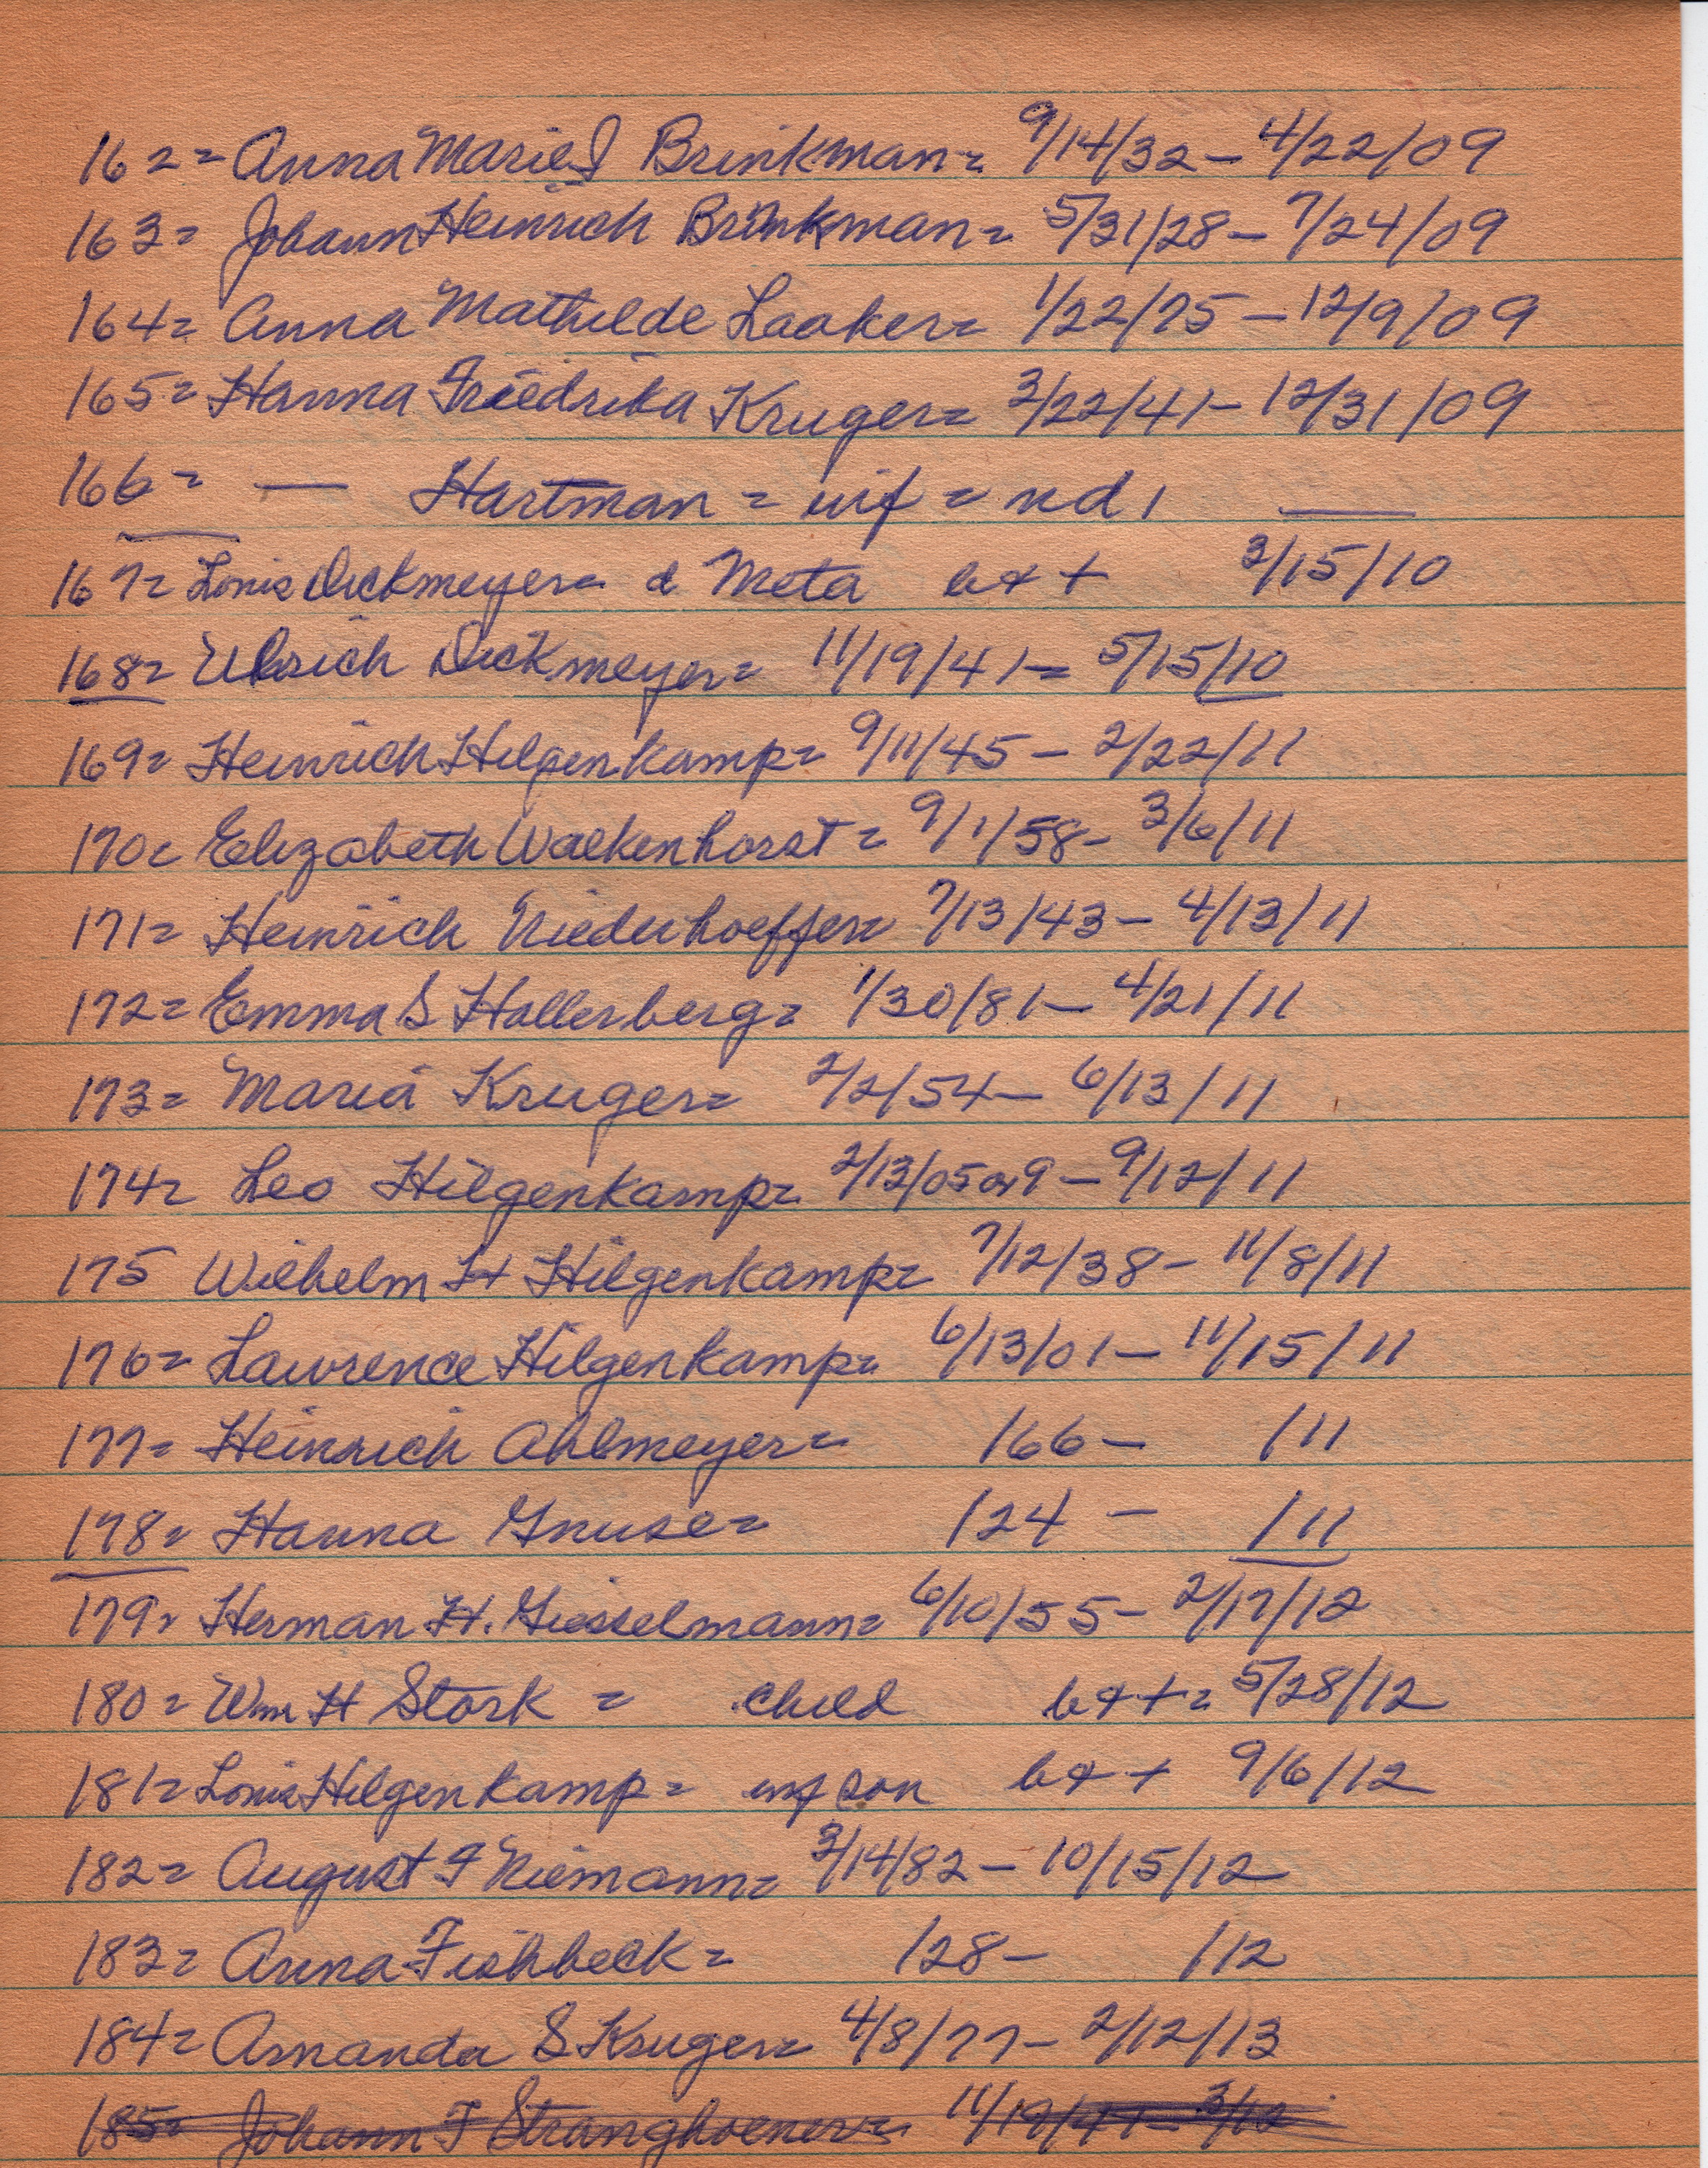 162 = Anna Marie I Brinkman = 9/14/32 - 4/22/09
163 = Johann Heinrich Brinkman = 5/31/28 - 7/24/09
164 = Anna Mathilde Laaker = 1/22/75 - 12/9/09
165 = Hanna Friedrika Kruger = 3/22/41 - 12/31/09
166 = — Hartman = inf = nd, —
167 = Louis Dickmeyer = d Meta b & + 3/15/10
168 = Ulrich Dickmeyer = 11/19/41 = 5/15/10
169 = Heinrich Hilgenkamp = 9/11/45 - 2/22/11
170 = Elizabeth Walkenhorst = 9/1/58 - 3/6/11
171 = Heinrich Niederhoeffer = 7/13/43 - 4/13/11
172 = Emma S Hollerberg = 1/30/81 - 4/21/11
173 = Maria Kruger = 2/2/54 - 6/13/11
174 = Leo Hilgenkamp = 2/13/05 or 9 - 9/12/11
175 Wilhelm H Hilgenkamp = 7/12/38 - 11/8/11
176 = Lawrence Hilgenkamp = 6/13/01 - 11/15/11
177 = Heinrich Ahlmeyer = /66 - /11
178 = Hanna Gnuse = /24 - /11
179 = Herman H. Giesselmann = 6/10/55 - 2/17/12
180 = Wm H Stork = child b & + = 5/28/12
181 = Louis Hilgenkamp = inf son b & + 9/6/12
182 = August F Niemann = 3/14/82 - 10/15/12
183 = Anna Fishbeck = /28 - /12
184 = Amanda S Kruger = 4/8/77 - 2/12/13
185 = Johann F Stranghoener = 11/19/41 - 3/12